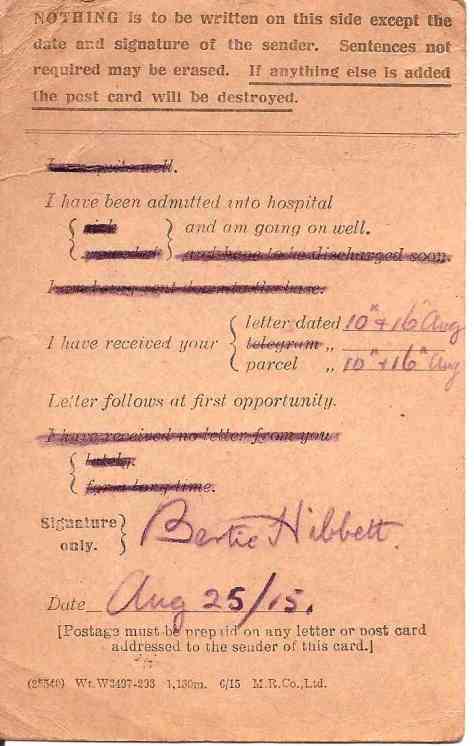 NOTHING is to be written on this side except the
date and signature of the sender. Sentences not
required may be erased. If anything else is added
the post card will be destroyed.
I am quite well.
I have been admitted into hospital
sick
and am going on well.
wounded
and hope to be discharged soon.
I am being sent down to the base.
letter dated 10th & 16th Aug
I have received your
telegram „
parcel „ 10th + 16th Aug
Letter follows at first opportunity.
I have received no letter from you
lately.
for a long time.
Signature
only.
Bertie Hibbett.
Date Aug 25/15.
[Postage must be prepaid on any letter or post card
addressed to the sender of this card.]
(25540) Wt.W3497-293 1,130m. 6/15 M.R.Co.,Ltd.